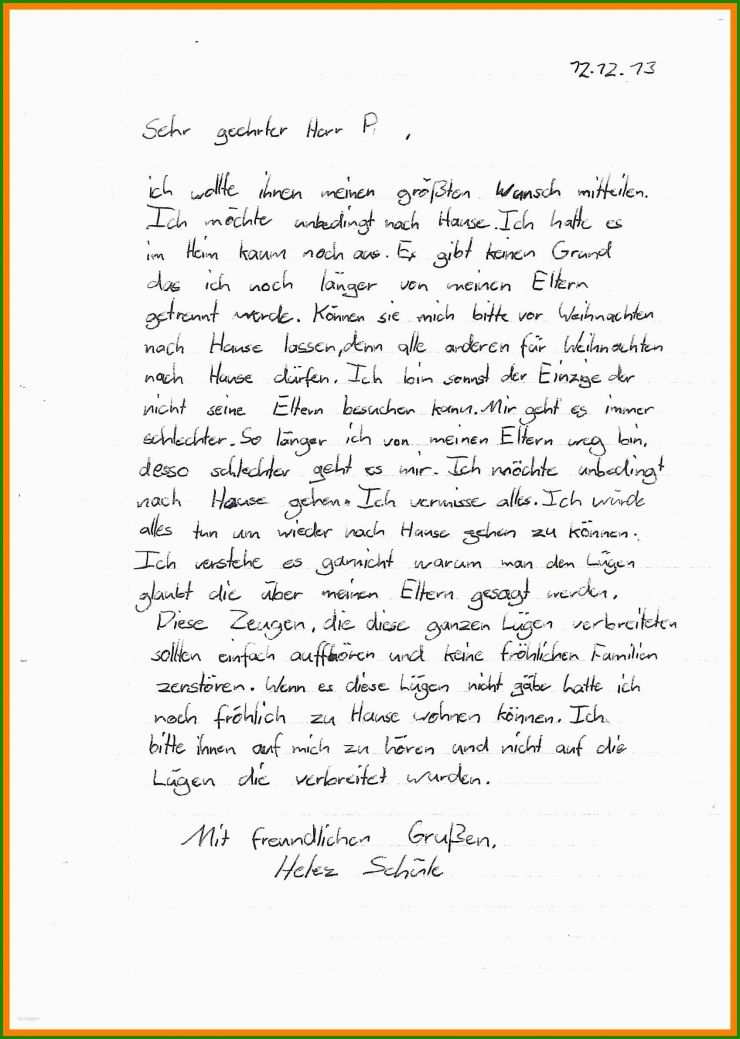 12.12.13
Sehr geehrter Herr P.,
ich wollte ihnen meinen größten Wunsch mitteilen.
Ich möchte unbedingt nach Hause. Ich halte es
im Heim kaum noch aus. Es gibt keinen Grund
das ich noch länger von meinen Eltern
getrennt werde. Können sie mich bitte vor Weihnachten
nach Hause lassen, denn alle anderen für Weihnachten
nach Hause dürfen. Ich bin sonst der Einzige der
nicht seine Eltern besuchen kann. Mir geht es immer
schlechter. So länger ich von meinen Eltern weg bin,
desso schlechter geht es mir. Ich möchte unbedingt
nach Hause gehen. Ich vermisse alles. Ich würde
alles tun um wieder nach Hause gehen zu können.
Ich verstehe es garnicht warum man den Lügen
glaubt die über meinen Eltern gesagt werden.
Diese Zeugen, die diese ganzen Lügen verbreiteten
sollten einfach aufhören und keine fröhlichen Familien
zerstören. Wenn es diese Lügen nicht gäbe hätte ich
noch fröhlich zu Hause wohnen können. Ich
bitte ihnen auf mich zu hören und nicht auf die
Lügen die verbreitet wurden.
Mit freundlichen Grußen,